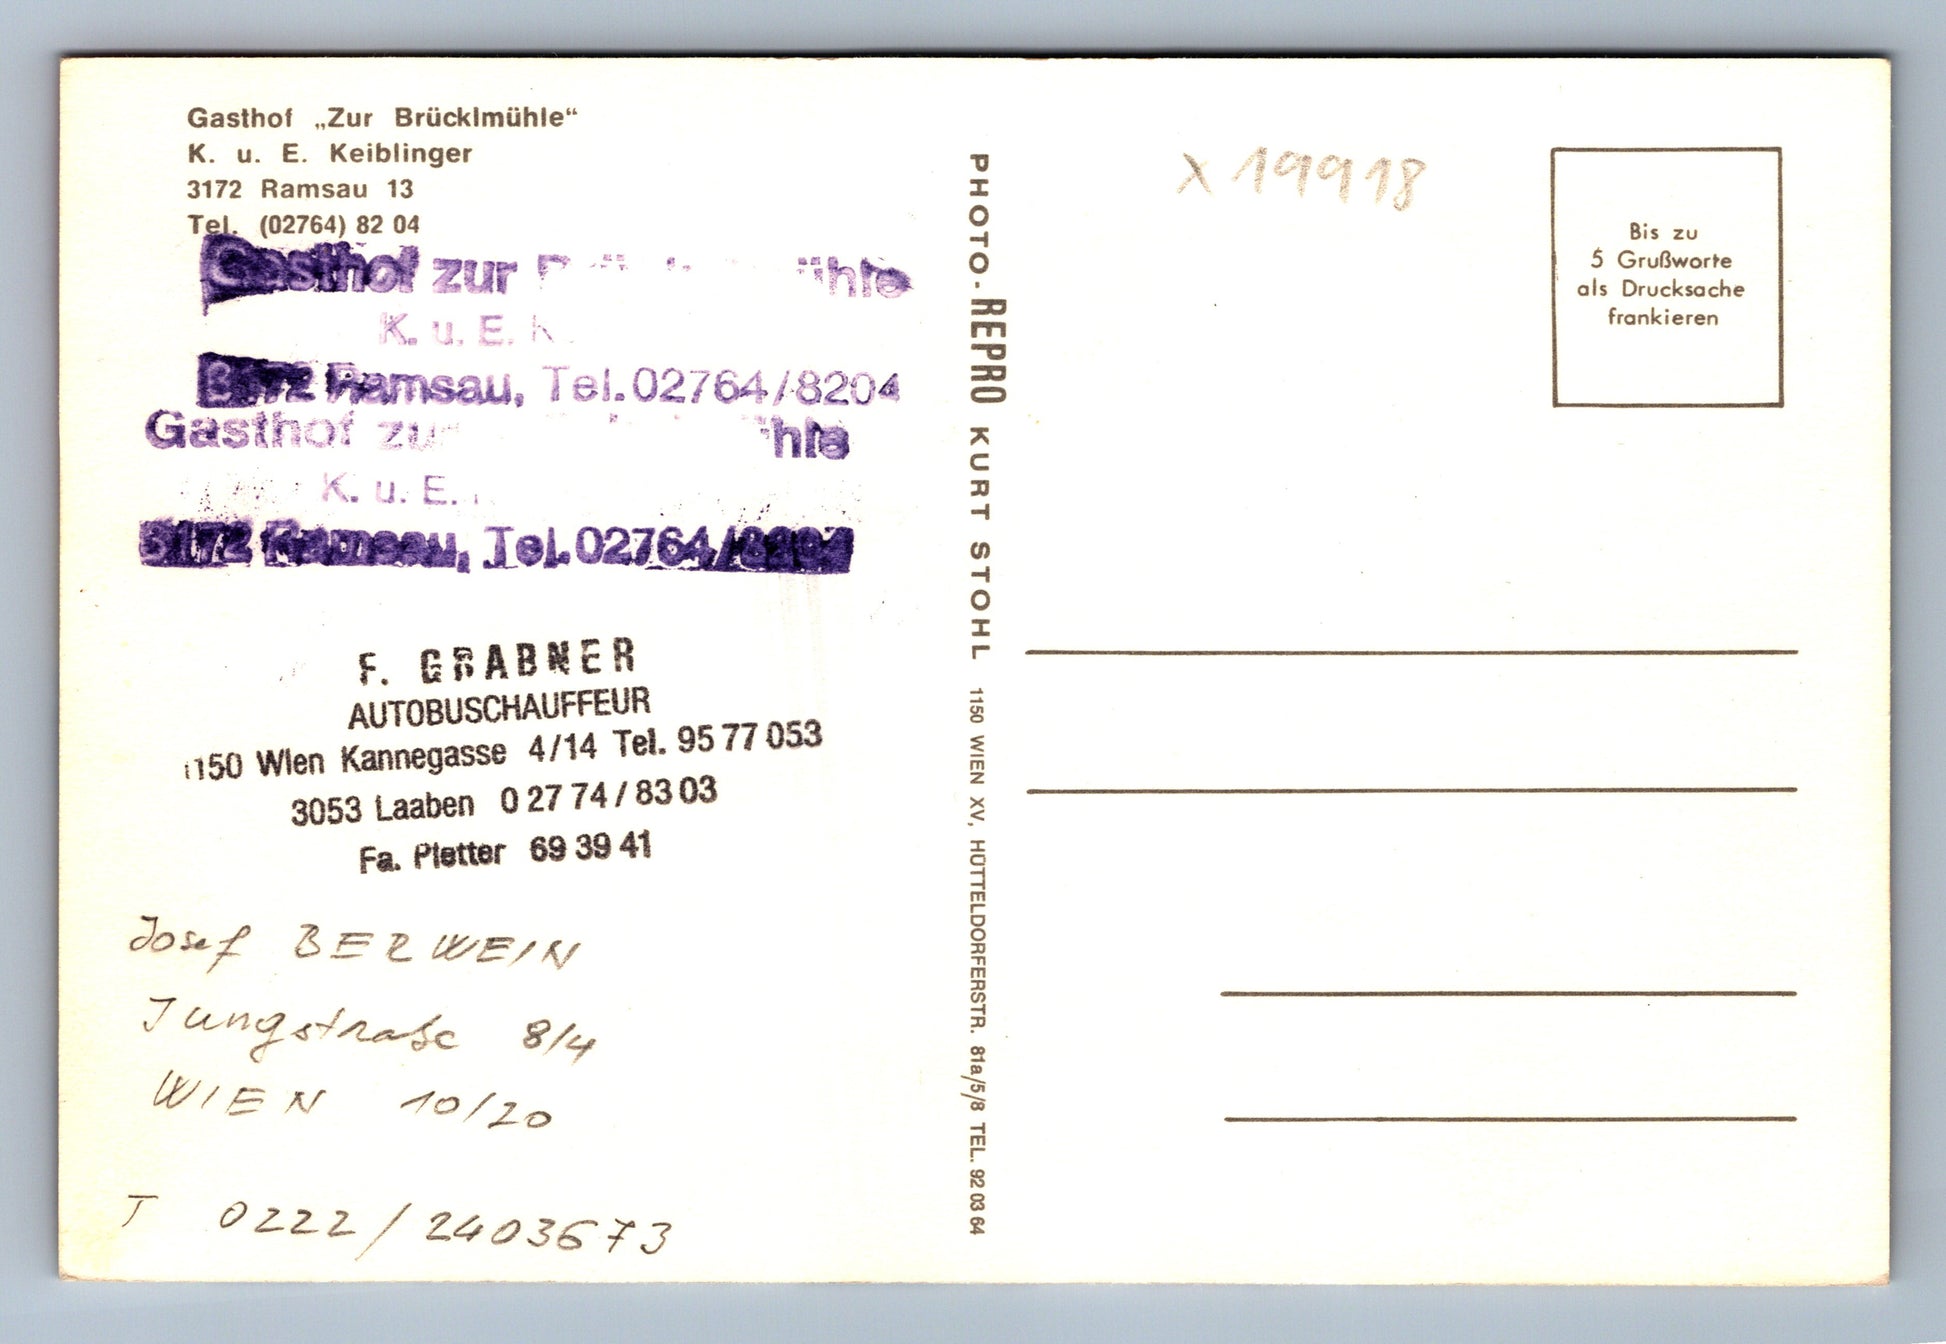 Gasthof „Zur Brücklmühle“
K. u. E. Keiblinger
3172 Ramsau 13
Tel. (02764) 82 04
Gasthof zur
K. u. E.
3172 Ramsau, Tel. 02764/8204
Gasthof zur
K. u. E.
3172 Ramsau, Tel. 02764/8204
F. GRABNER
AUTOBUSCHAUFFEUR
1150 Wien Kannegasse 4/14 Tel. 95 77 053
3053 Laaben 0 27 74 / 83 03
Fa. Pletter 69 39 41
Josef BERWEIN
Jungstraße 8/4
WIEN 10/20
T 0222/2403673
PHOTO-REPRO KURT STOHL 1150 WIEN XV, HÜTTELDORFERSTR. 81a/5/8 TEL. 92 03 64
X 19918
Bis zu
5 Grußworte
als Drucksache
frankieren